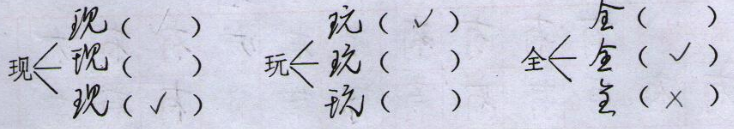 现（ ） 玩（ ✓ ） 全（ ）
现 现（ ） 玩 玩（ ） 全 全（ ✓ ）
现（ ✓ ） 玩（ ） 全（ × ）